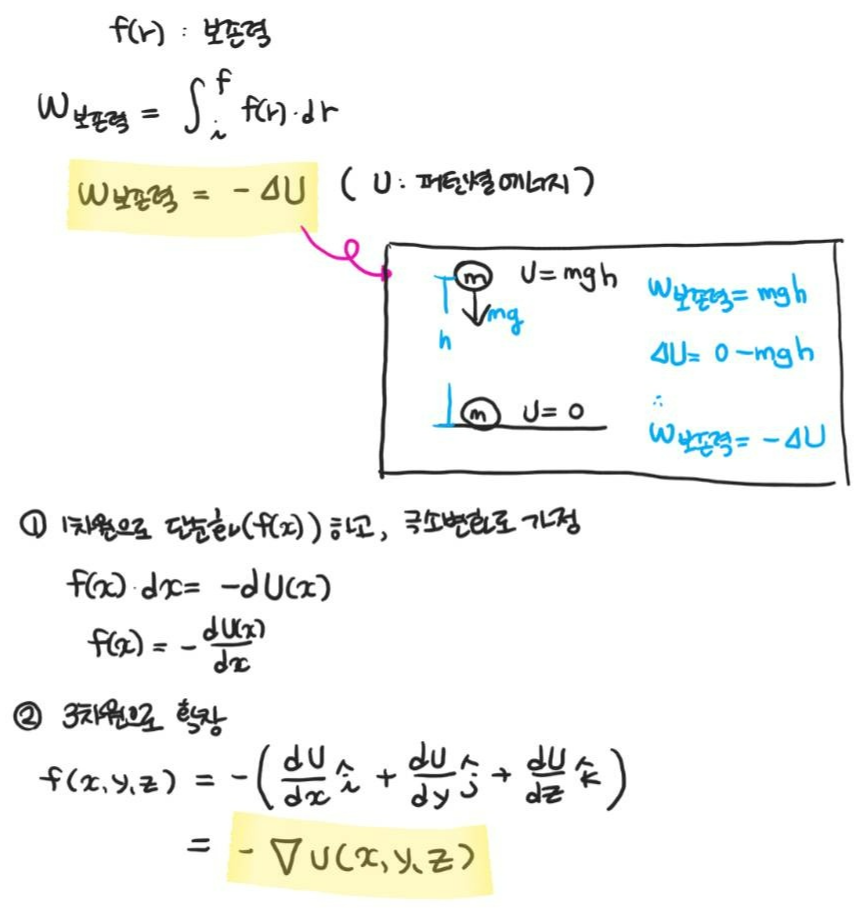 f(r) : 보존력
W보존력 = ∫ᵢᶠ f(r)·dr
W보존력 = -ΔU ( U : 퍼텐셜에너지 )
m U = mgh
mg
h
m U = 0
W보존력 = mgh
ΔU = 0 - mgh
∴
W보존력 = -ΔU
① 1차원으로 단순화(f(x)) 하고, 극소변화로 가정
f(x)·dx = -dU(x)
f(x) = - dU(x)/dx
② 3차원으로 확장
f(x,y,z) = -( dU/dx î + dU/dy ĵ + dU/dz k̂ )
= -∇U(x,y,z)